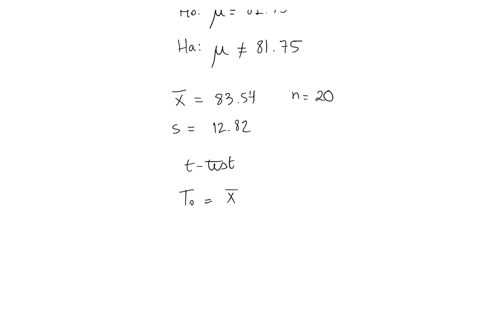 Ho: μ = 81.75
Ha: μ ≠ 81.75
x̄ = 83.54 n = 20
s = 12.82
t-test
T₀ = x̄